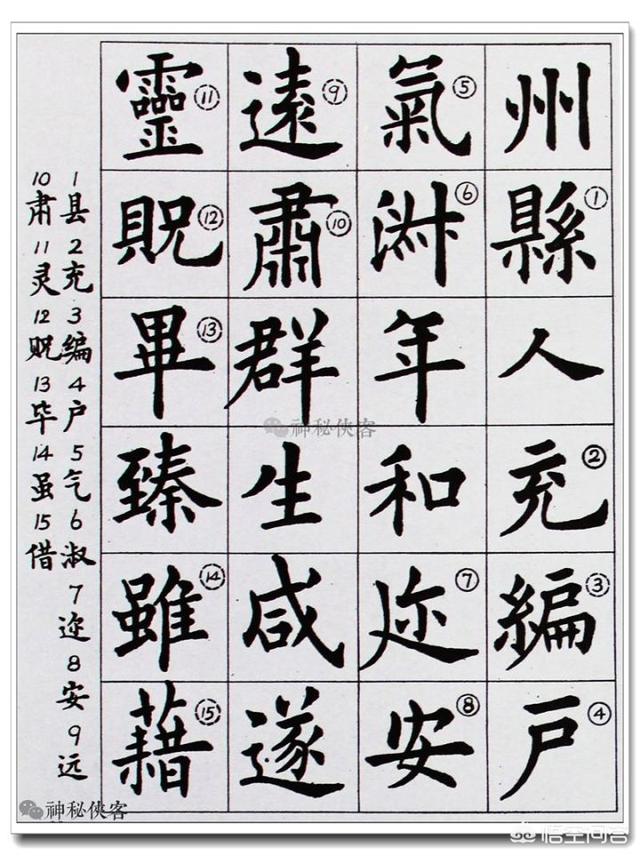 州縣①人充②編③戶④
氣⑤淑⑥年和迩⑦安⑧
遠⑨肅⑩群生咸遂
靈⑪貺⑫畢⑬臻雖⑭藉⑮
1县2充3编4户5气6淑7迩8安9远
10肃11灵12贶13毕14虽15借
神秘俠客
神秘俠客
悟空问答